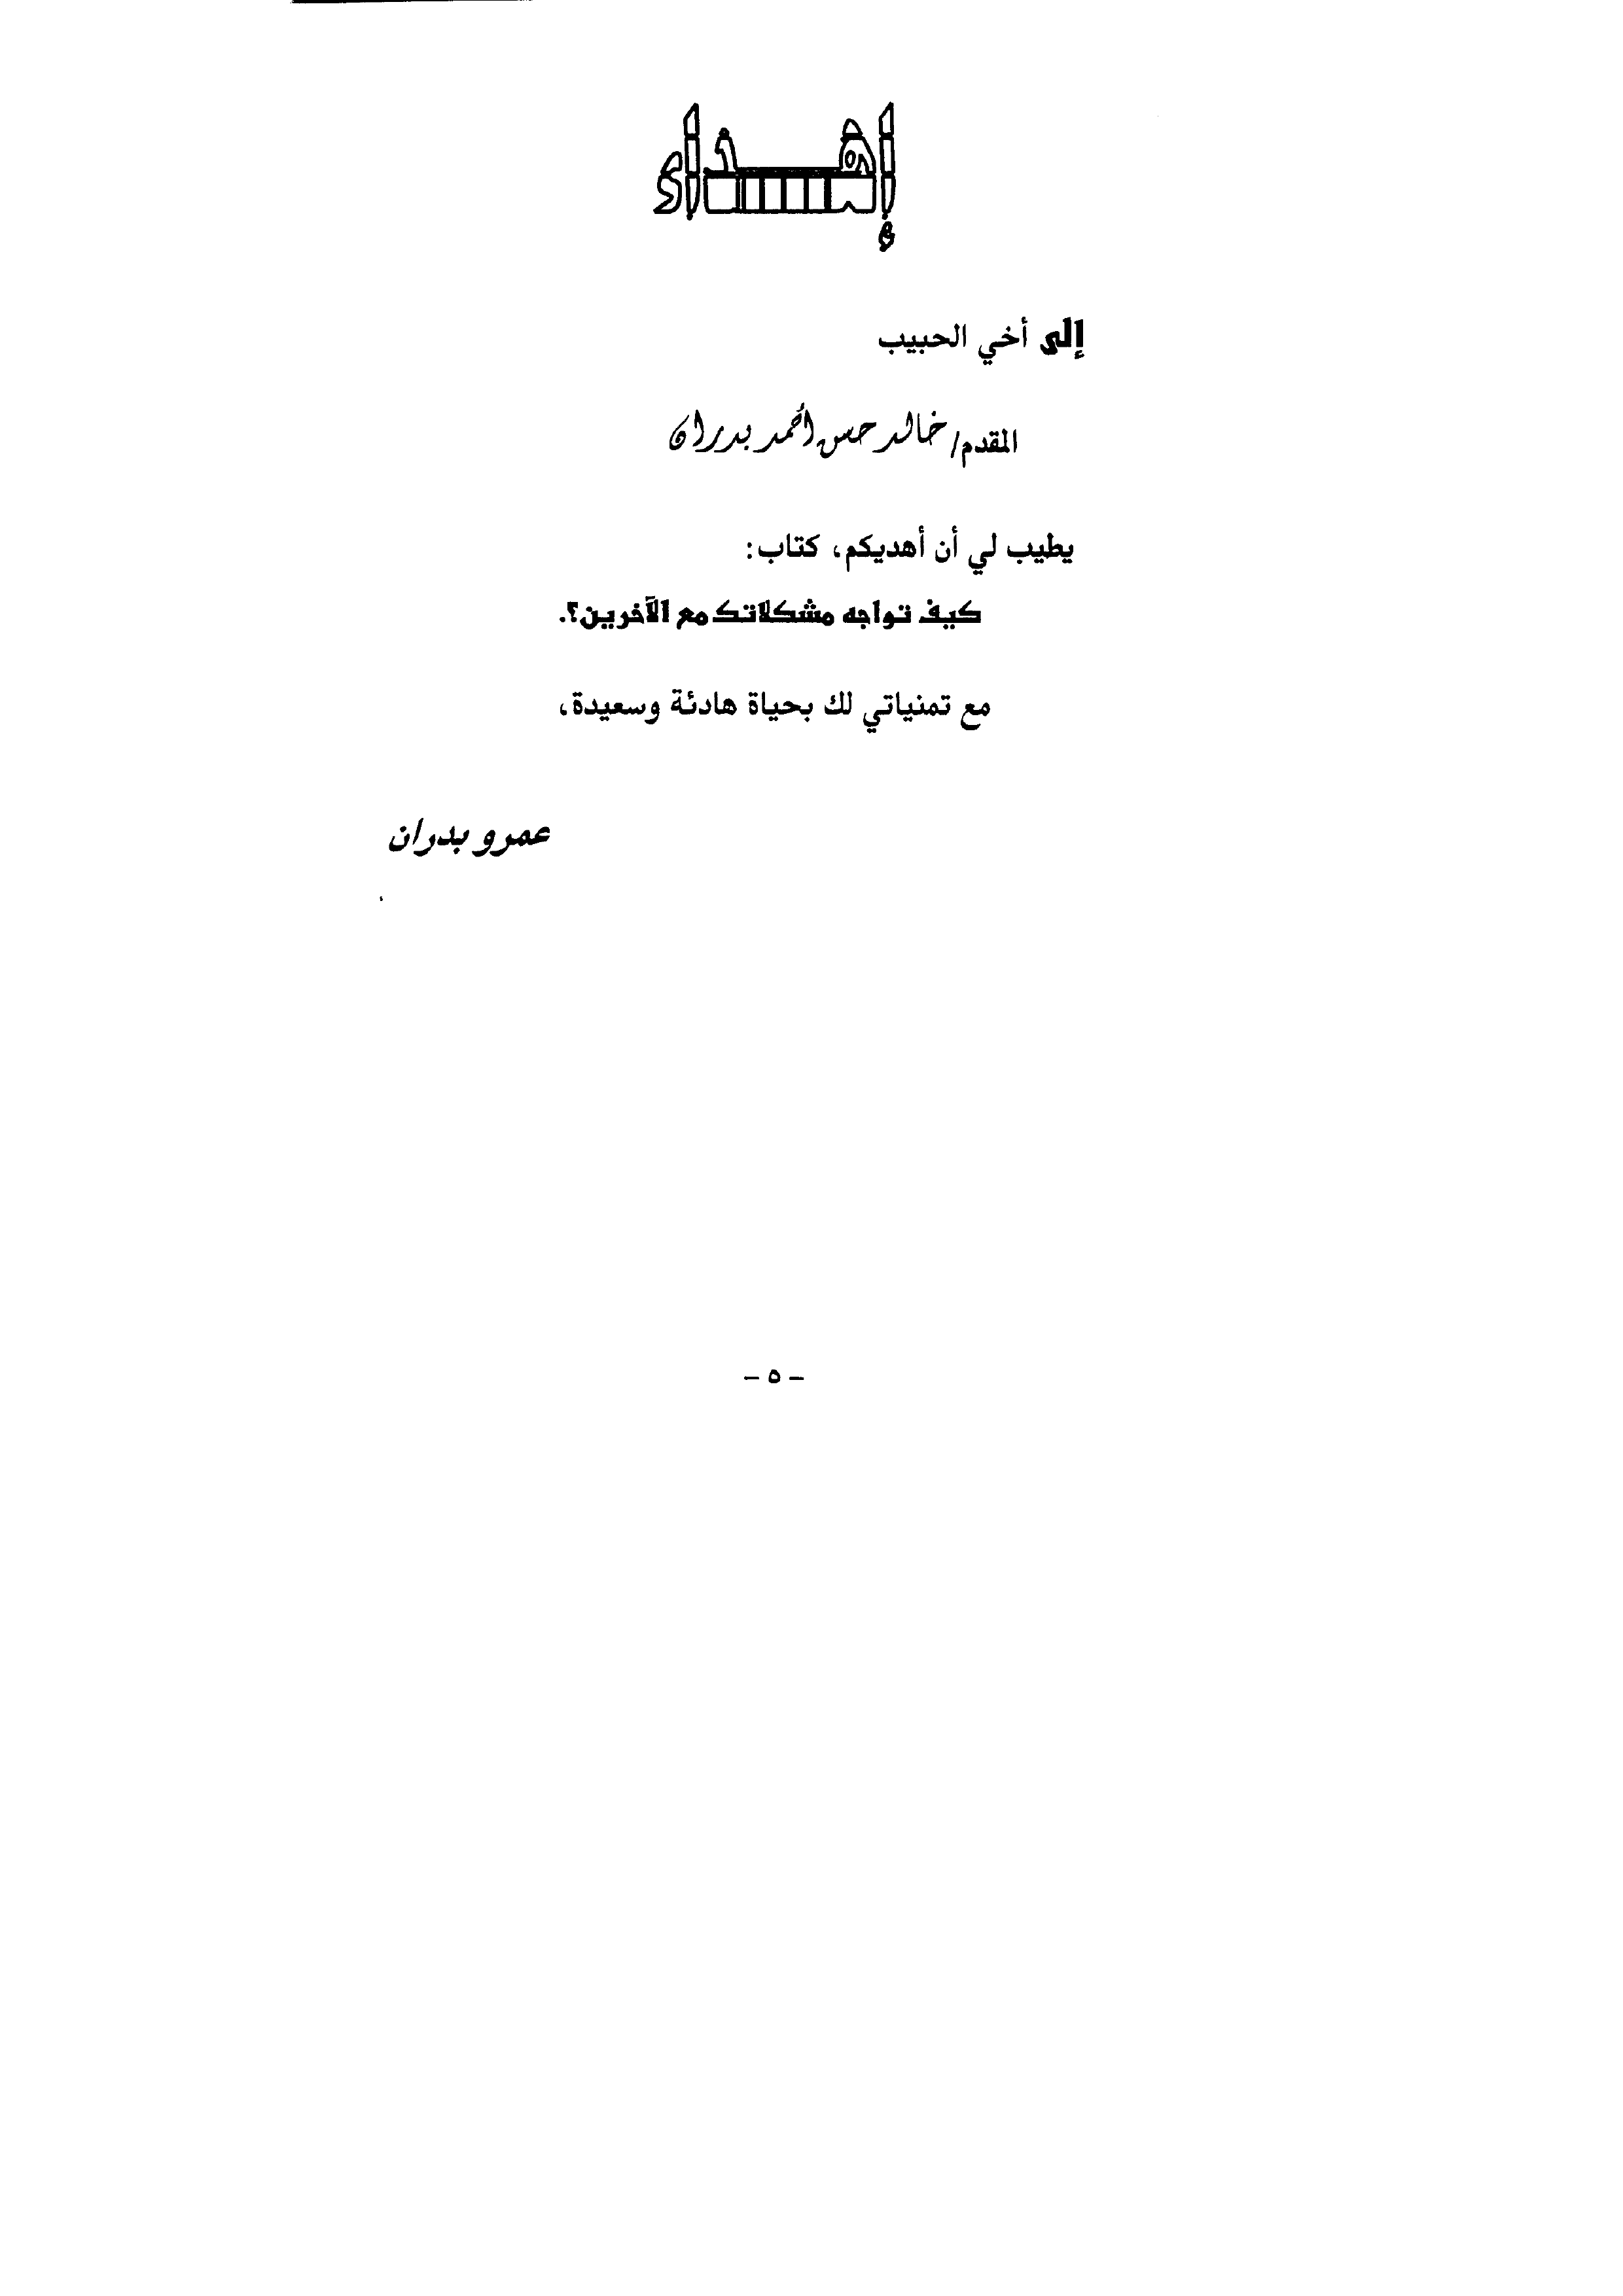 إهـــداء
إلى أخي الحبيب
المقدم/ خالد حسن أحمد بدران
يطيب لي أن أهديكم، كتاب:
كيف تواجه مشكلاتك مع الآخرين؟.
مع تمنياتي لك بحياة هادئة وسعيدة،
عمرو بدران
– ٥ –